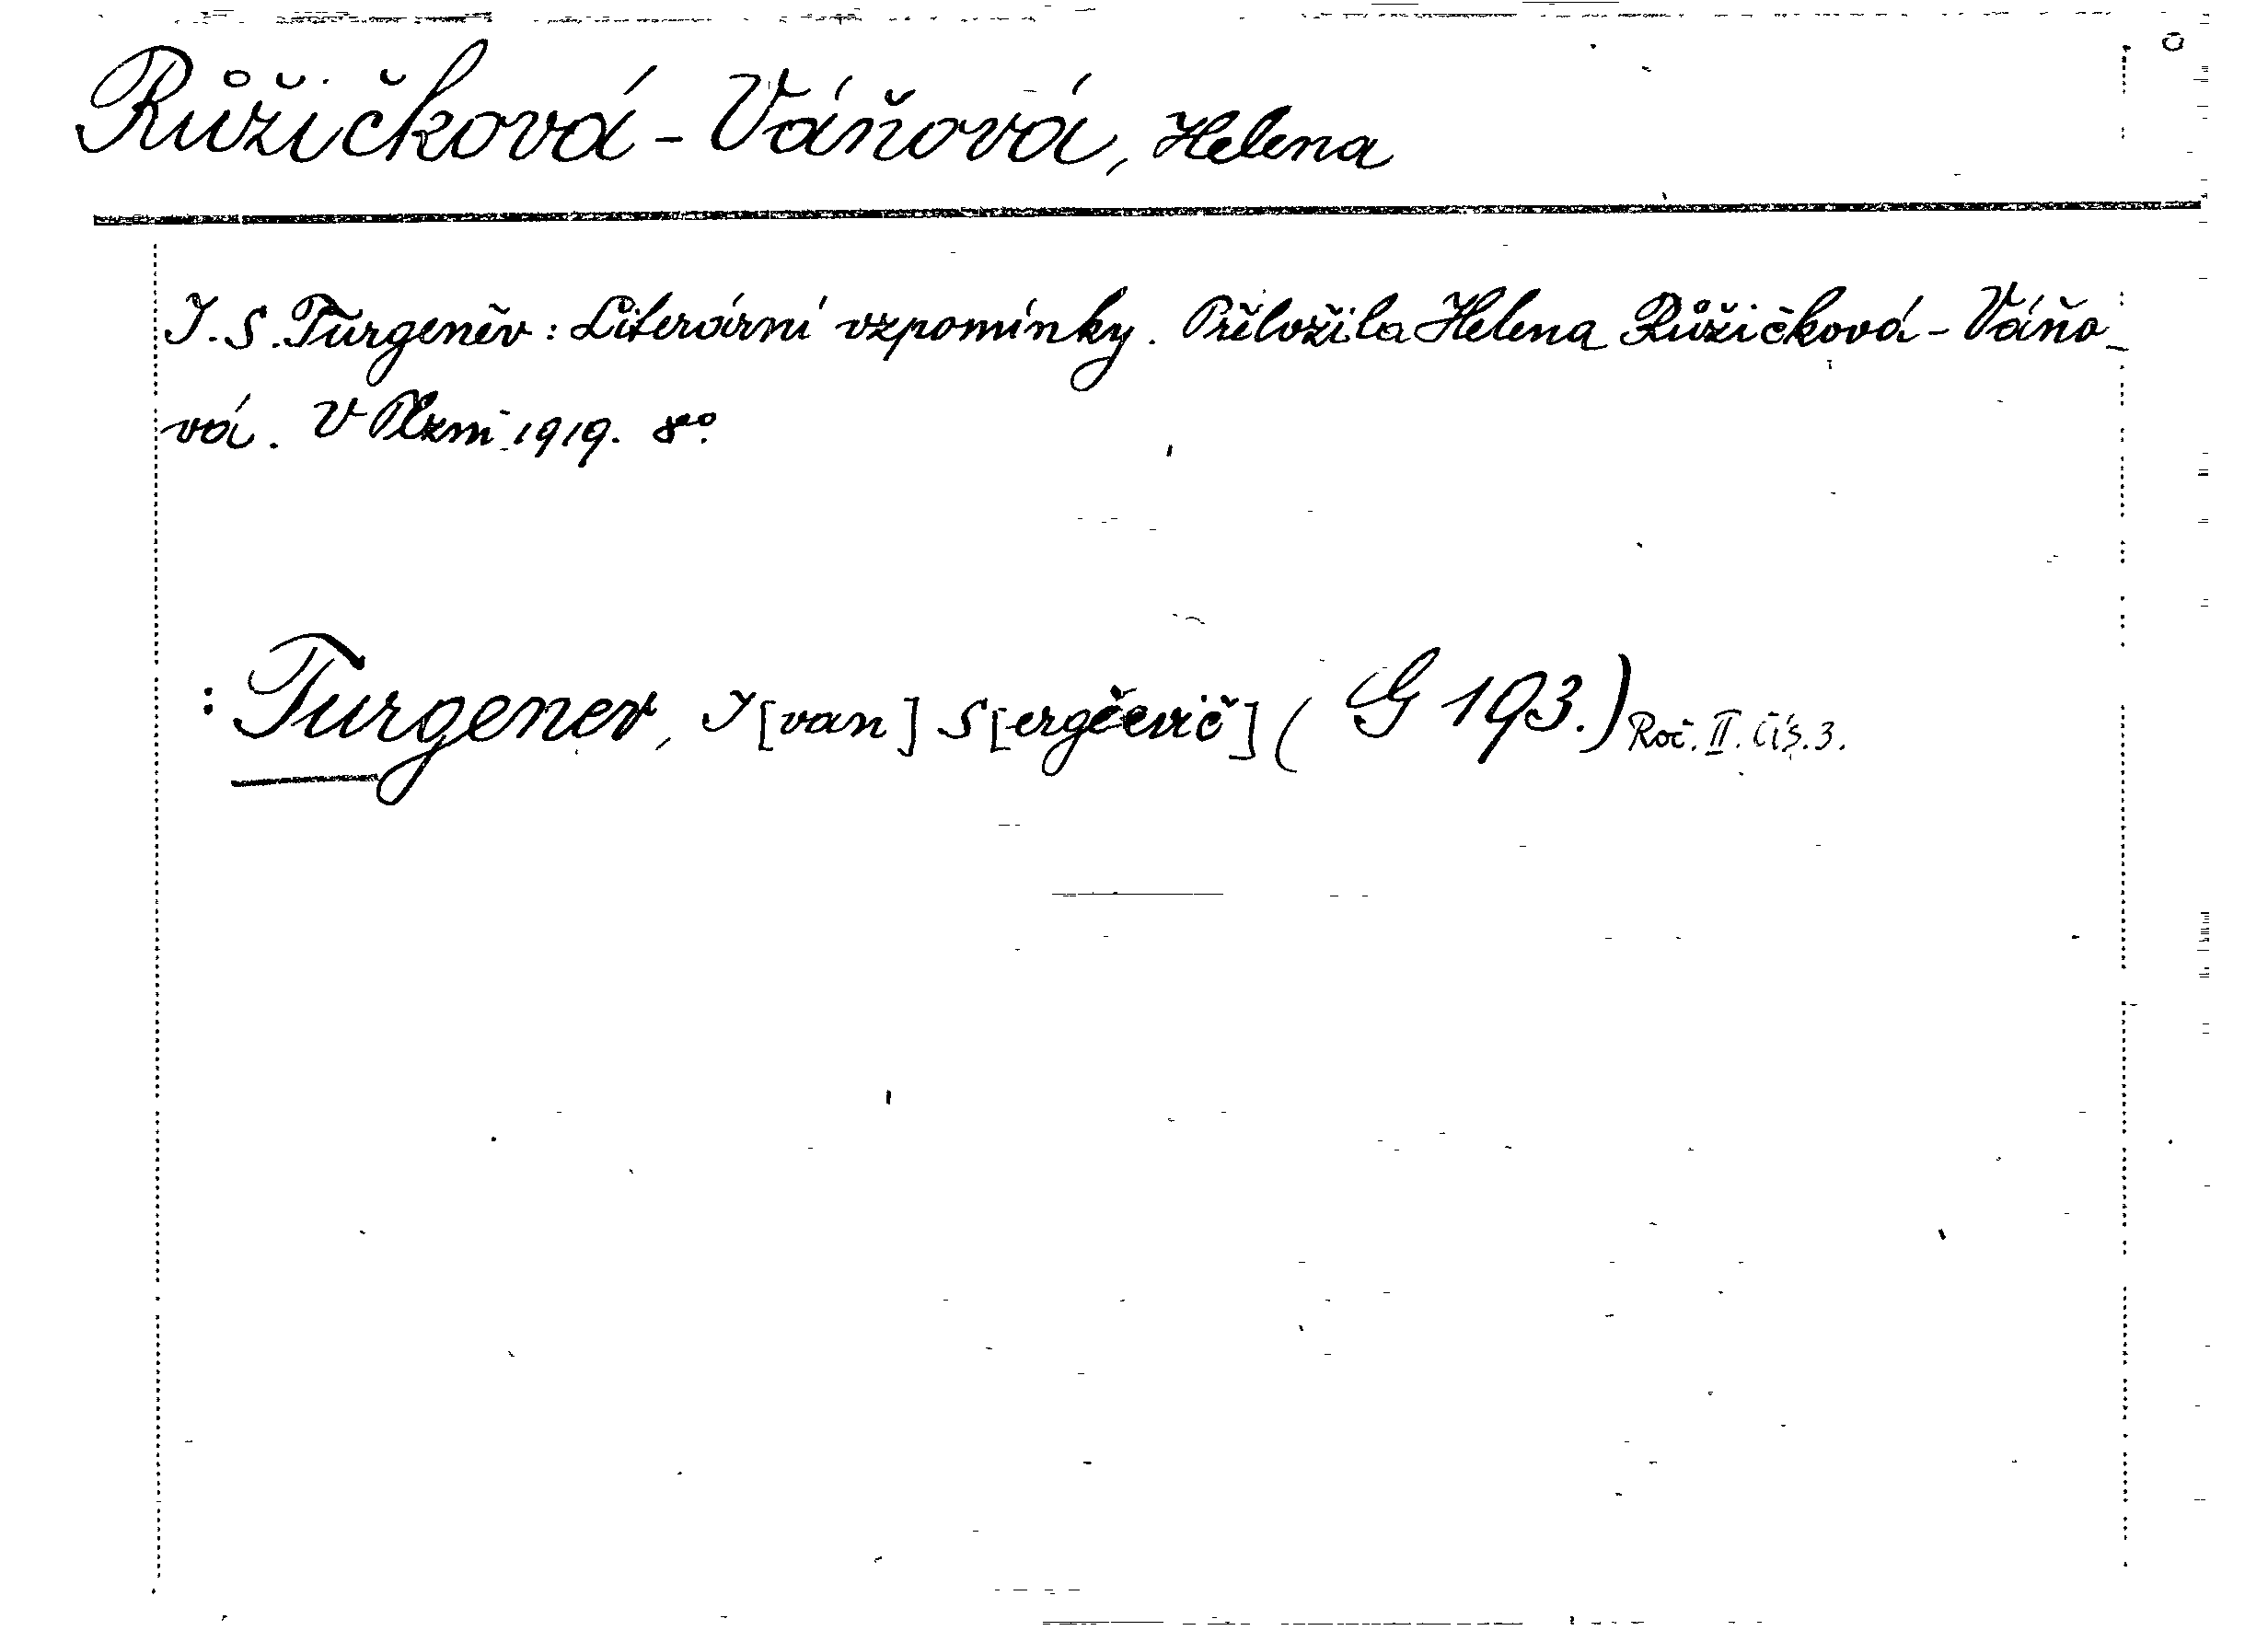 Růžičková - Váňová, Helena
I. S. Turgeněv: Literární vzpomínky. Přeložila Helena Růžičková - Váňo-
vá. V Plzni 1919. 8°.
: Turgenev, I[van] S[ergěevič] (G 193.) Roč. II. Čís. 3.